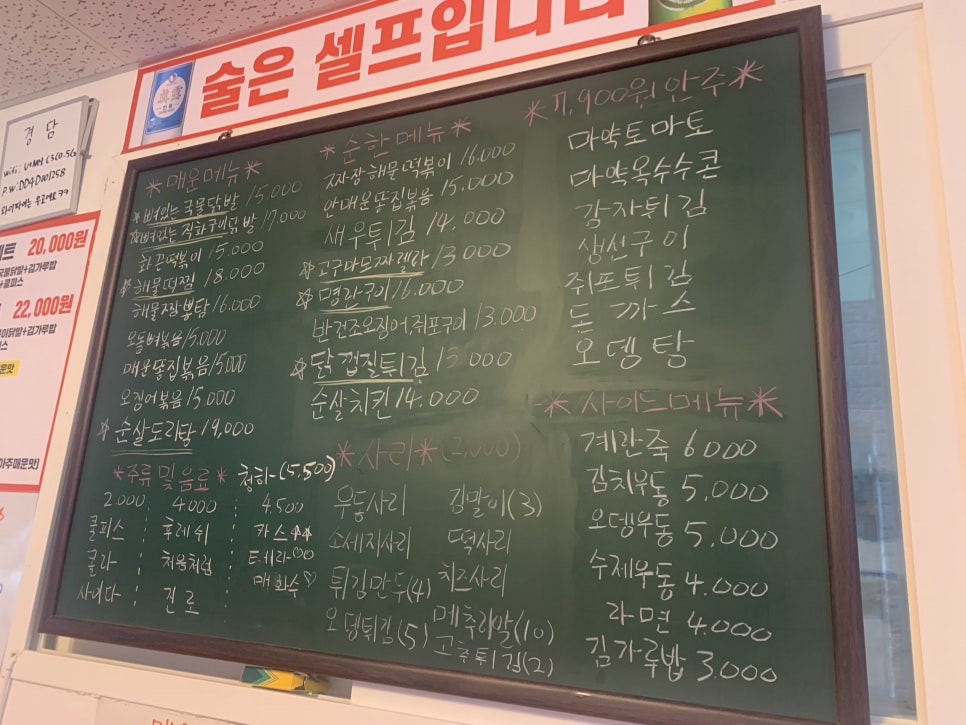 술은 셀프입니다
경담
wifi: U+Net C3C0.5G
P.W: DD4D001258
와이파이는 무료예요 ㅋㅋ
20,000원
국물닭발+김가루밥
+쿨피스
22,000원
이닭발+김가루밥
피스
운맛
아주매운맛]
*매운메뉴*
☆뼈있는 국물닭발 15,000
☆뼈있는 직화구이닭발 17,000
화끈떡볶이 15,000
☆해물떡찜 18,000
해물짬뽕탕 16,000
오돌뼈볶음 15,000
매운똥집볶음 15,000
오징어볶음 15,000
☆순살도리탕 19,000
*주류 및 음료* 청하-(5,500)
2,000 : 4,000 : 4,500
쿨피스 : 후레쉬 : 카스
콜라 : 처음처럼 : 테라♡♡
사이다 : 진로 : 매화수♡
*순한메뉴*
짜장해물떡볶이 16,000
안매운똥집볶음 15,000
새우튀김 14,000
☆고구마모짜렐라 13,000
☆명란구이 16,000
반건조오징어쥐포구이 13,000
☆닭껍질튀김 13,000
순살치킨 14,000
*사리*(2,000)
우동사리 김말이(3)
소세지사리 떡사리
튀김만두(4) 치즈사리
오뎅튀김(5) 메추리알(10)
고추튀김(2)
*7,900원 안주*
마약토마토
마약옥수수콘
감자튀김
생선구이
쥐포튀김
돈까스
오뎅탕
*사이드메뉴*
계란죽 6000
김치우동 5,000
오뎅우동 5,000
수제우동 4,000
라면 4,000
김가루밥 3,000